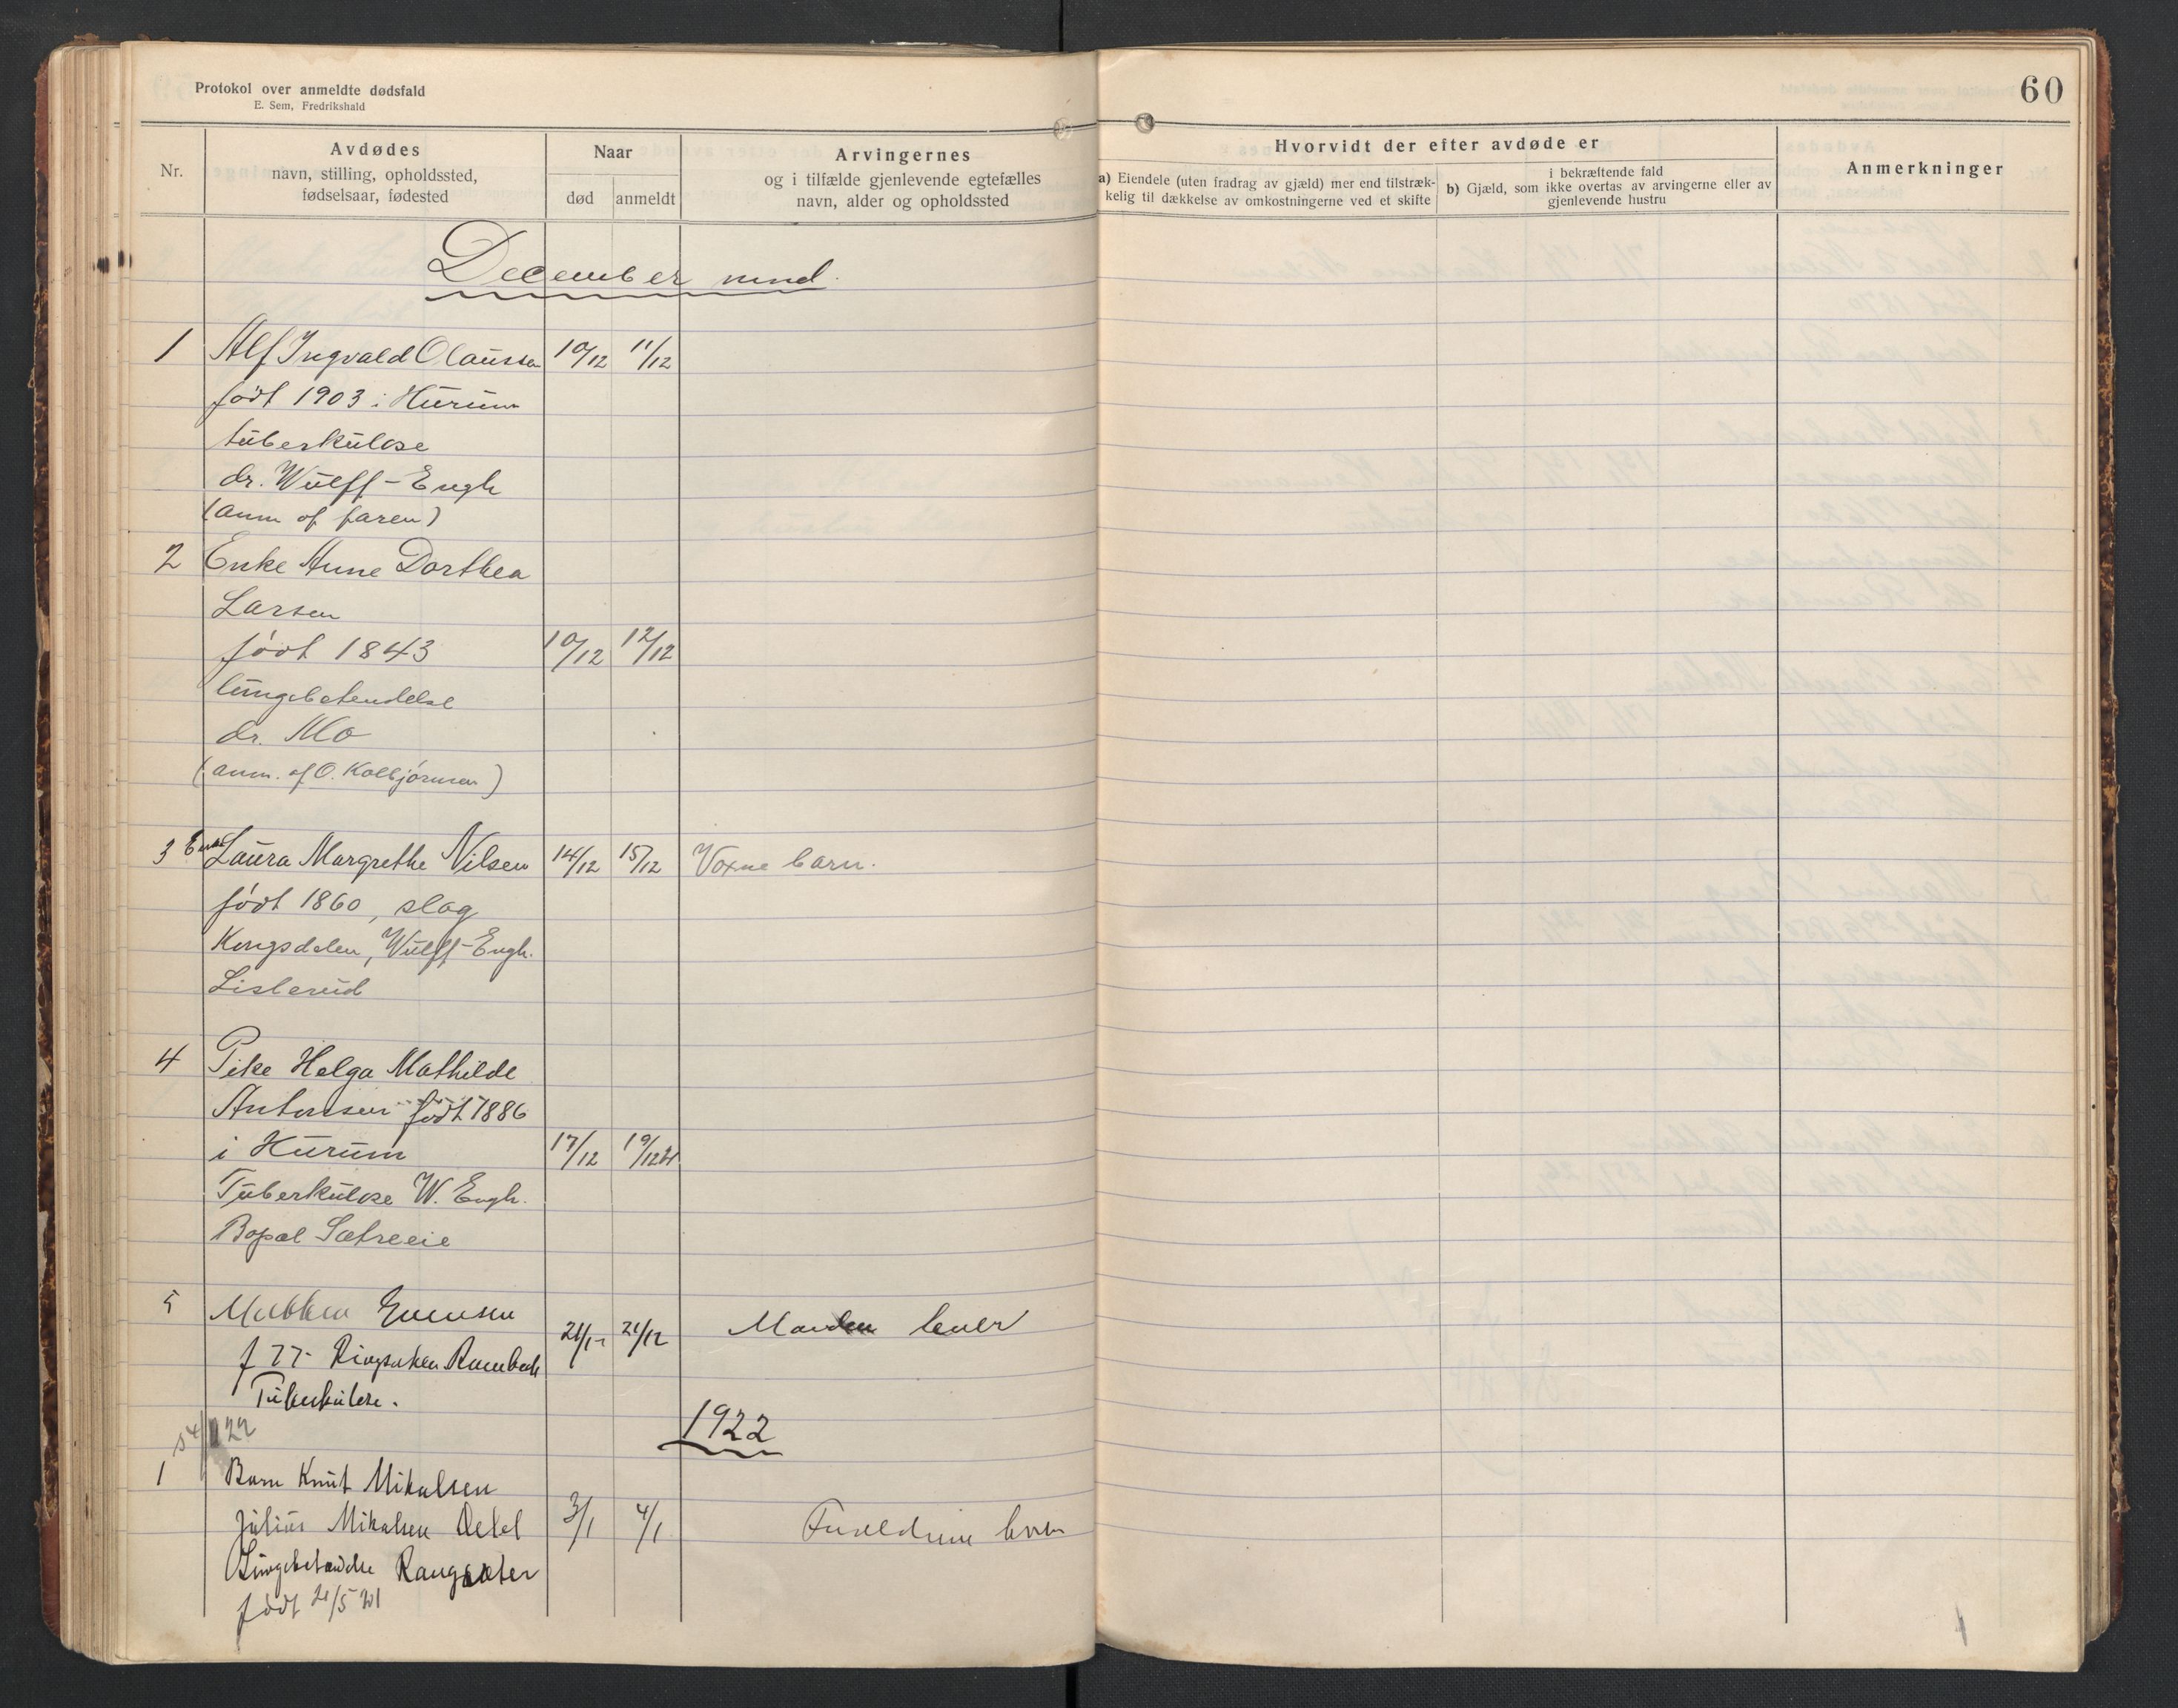 Protokol over anmeldte dødsfald
E. Sem, Fredrikshald
60
Nr.
Avdødes
navn, stilling, opholdssted,
fødselsaar, fødested
Naar
død
anmeldt
Arvingernes
og i tilfælde gjenlevende egtefælles
navn, alder og opholdssted
Hvorvidt der efter avdøde er
a) Eiendele (uten fradrag av gjæld) mer end tilstræk-
kelig til dækkelse av omkostningerne ved et skifte
i bekræftende fald
b) Gjæld, som ikke overtas av arvingerne eller av
gjenlevende hustru
Anmerkninger
December mnd.
1 Alf Ingvald Olaussen 10/12 11/12
født 1903 i Hurum
tuberkulose
dr. Wulff-Engh
(anm af faren)
2 Enke Anne Dorthea
Larsen
født 1843 10/12 12/12
lungebetendelse
dr. Mo
(anm. af O. Kolbjørnsen)
3 Enke Laura Margrethe Nilsen 14/12 15/12 Voxne barn.
født 1860, slag
Kongsdelen, Wulff-Engh.
Lislerud
4 Pike Helga Mathilde
Antonsen født 1886
i Hurum 17/12 19/12
Tuberkulose W. Engh.
Bopæl Sætreeie
5 Mathea Evensen
21/12 21/12 Manden lever
f 77 Ringsaker
Tuberkulose.
1922
1 Barn Knut Mikalsen
Julius Mikalsen 3/1 4/1 lever
Lungebetændelse
født 21/5 21